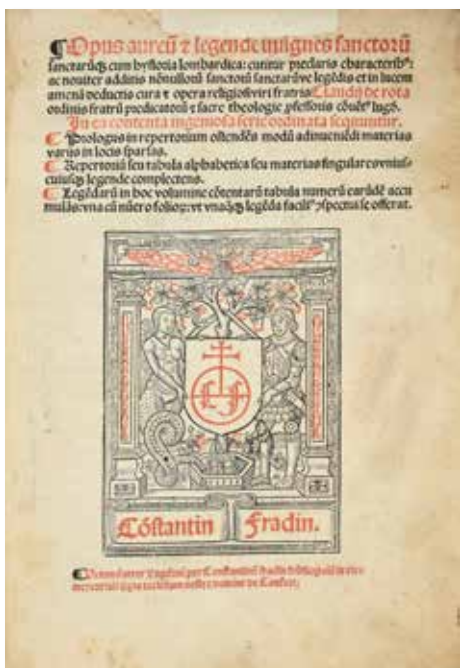 ¶Opus aureũ ⁊ legende insignes sanctorũ
sanctarũqꝫ cum hystoria lombardica: cutur preclaris characterib⁹:
ac nouiter additis nõnullorũ sanctorũ sanctarũve legẽdis et in lucem
amenã deductis cura ⁊ opera religiosi viri fratris Claudij de rota
ordinis fratrũ predicatorũ ⁊ sacre theologie ꝓfessoris cõuẽt⁹ lugd.
In ea contenta ingeniosa serie ordinata sequuntur.
¶ Prologus in repertorium ostendẽs modũ adinueniẽdi materias
variis in locis sparsas.
¶ Repertoriũ seu tabula alphabetica seu materias singulares vnius
cuiusqꝫ legende complectens.
¶ Legẽdarũ in hoc volumine cõtentarũ tabula numerũ earũdẽ accu
mulãs: vna cũ nũero folioꝝ: vt vnaqꝫqꝫ legẽda facili⁹ ꝓspectui se offerat.
Cõstantin Fradin.